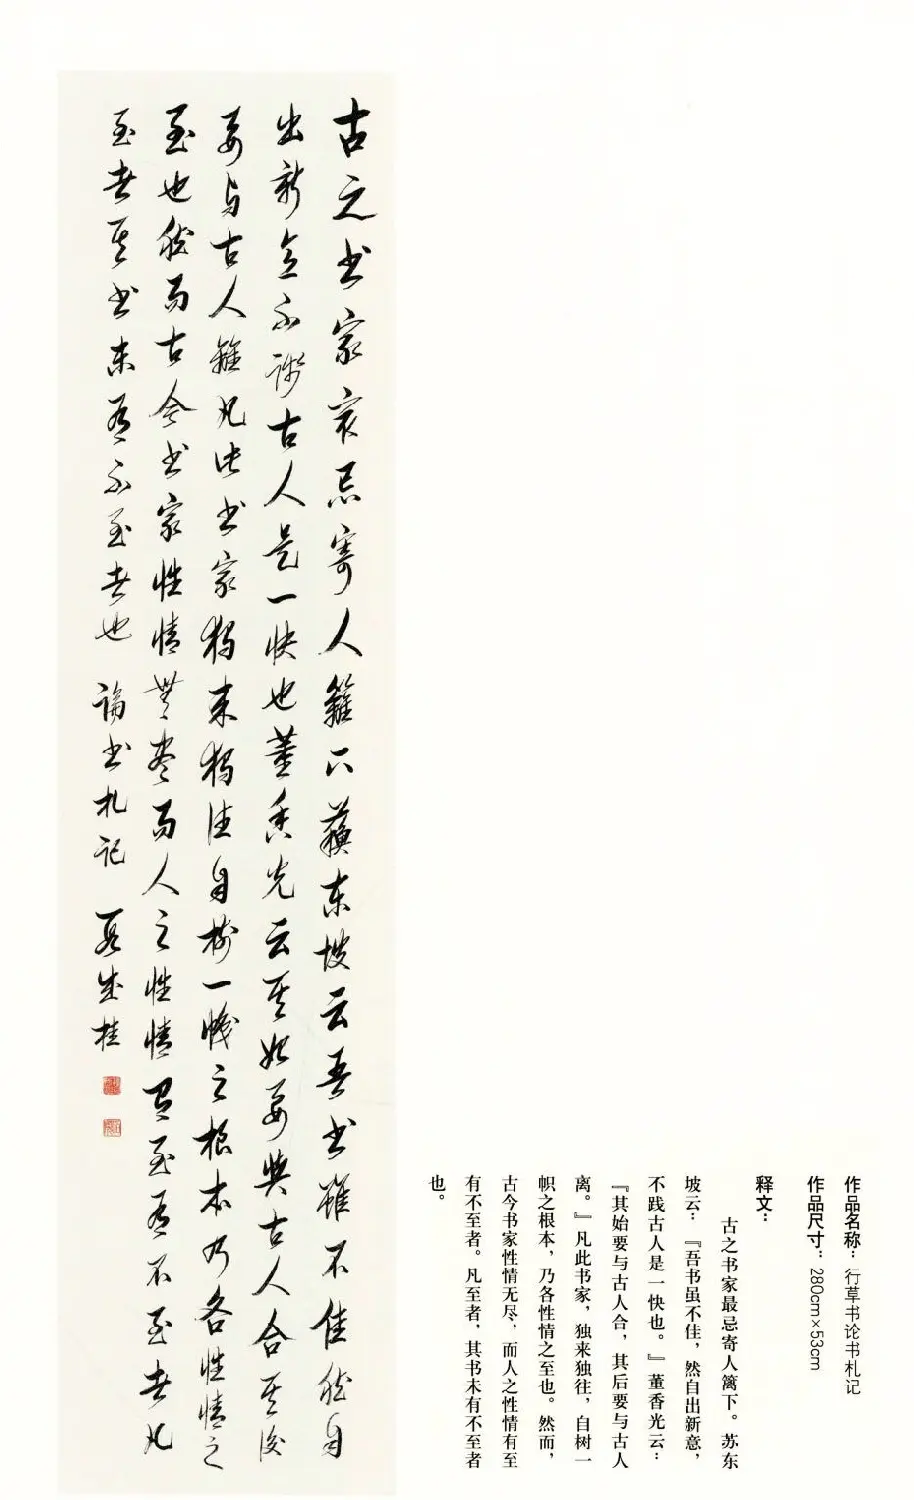 作品名称：行草书论书札记
作品尺寸：280cm×53cm
释文：
古之书家最忌寄人篱下。苏东
坡云：『吾书虽不佳，然自出新意，
不践古人是一快也。』董香光云：
『其始要与古人合，其后要与古人
离。』凡此书家，独来独往，自树一
帜之根本，乃各性情之至也。然而，
古今书家性情无尽，而人之性情有至
有不至者。凡至者，其书未有不至者
也。
古之书家最忌寄人籬下蘇东坡云吾书雖不佳然自
出新意不踐古人是一快也董香光云其始要與古人合其後
要与古人離凡此书家獨来獨往自树一幟之根本乃各性情之
至也然而古今书家性情無尽而人之性情有至有不至者凡
至者其书未有不至者也 論书札记 段成桂